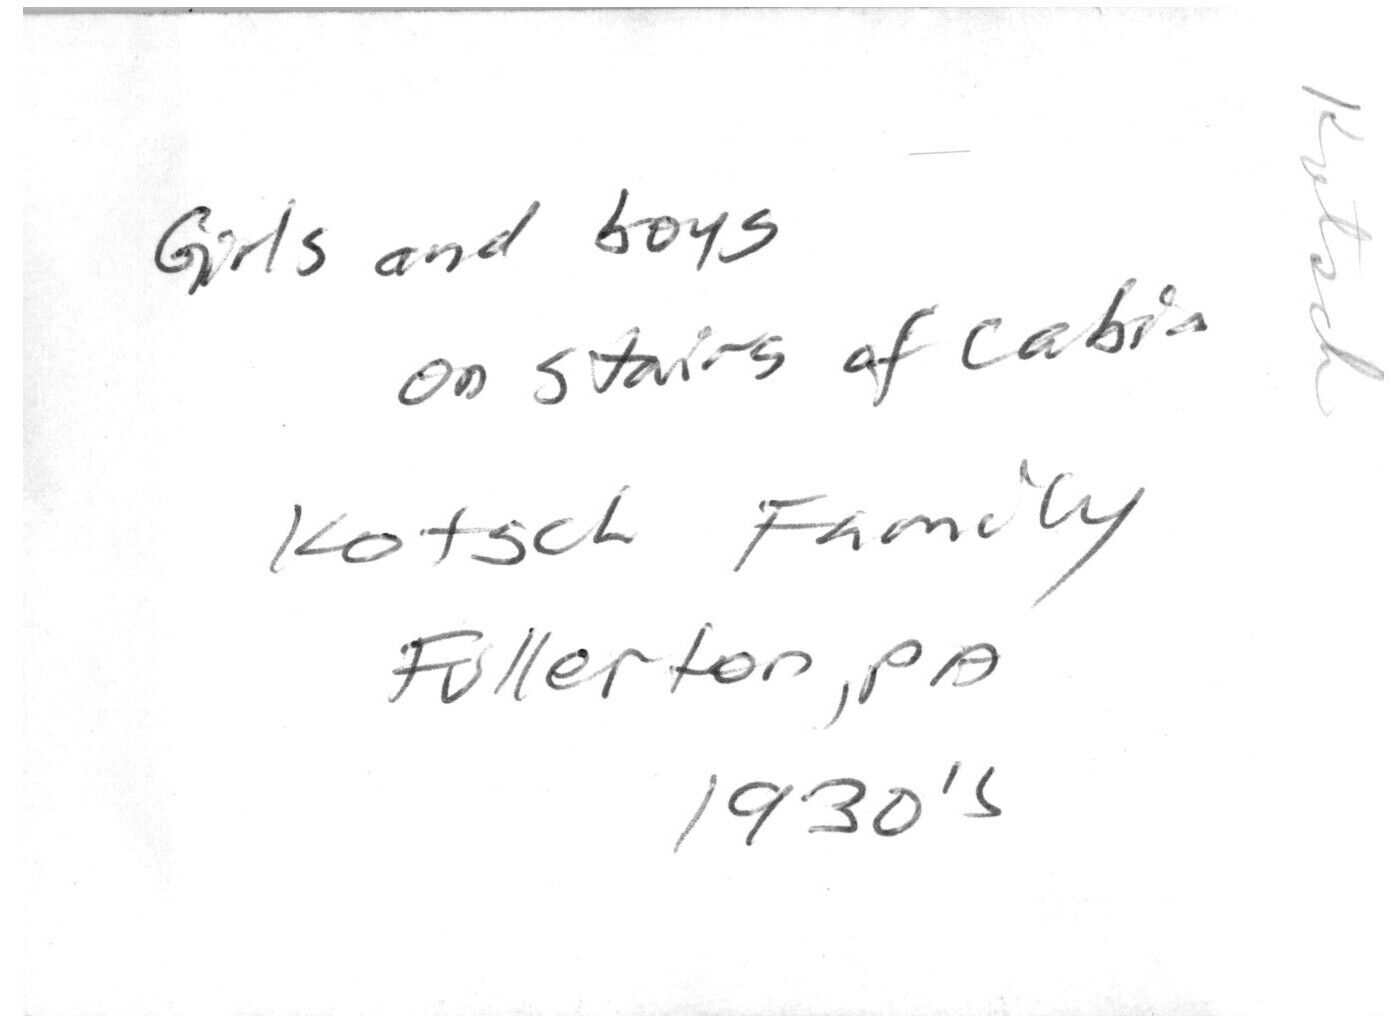 Girls and boys
on stairs of cabin
Kotsch Family
Fullerton, PA
1930's
Kotsch